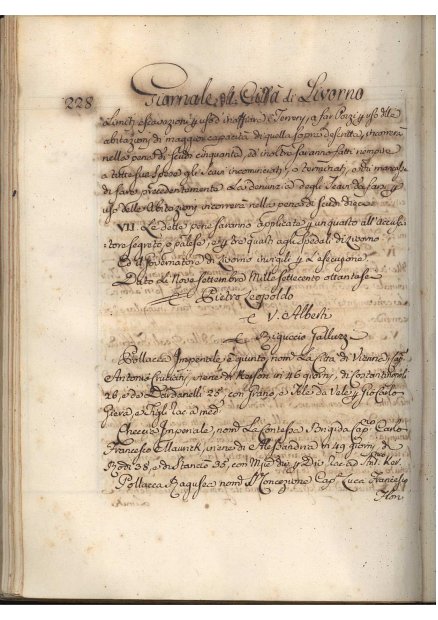 228
Giornale della Città di Livorno
Limiti escavazioni p uso inaffiare Terreni, a far Pozzi p uso delle
abitazioni di maggior capacità di quella sopra descritta, incorrerà
nella pena di Scudi cinquanta, ed inoltre saranno fatti
a tutte sue spese gli scavi incominciati, o terminati, e
di fare precedentemente la denunzia degli scavi da farsi p
uso delle Abitazioni incorrerà nella pena di Scudi dieci
VII. Le dette pene saranno applicate p un quarto all'accusa
tore segreto, o palese, e p tre quarti agli Spedali di Livorno
Il Governatore di Livorno invigili p l'esecuzione
Dato li Nove Settembre Mille settecento ottanta
Pietro Leopoldo
V. Alberti
Biguccio Galluzzi
Pollacca Imperiale, è giunto, nom. La Città di Vienna, Cap.
Antonio, viene di Kerson in 46 giorni, di Costantinopoli
26, e da Dardanelli 25, con grano, e Tele da Vele p Gio Carlo
e Figli
Checcia Imperiale, nom. La Contessa Brigida Cap. Carlo
Francesco, viene di Alessandria in 49 giorni, di
Rodi 38, e di Stancio 35, con
Pollacca Ragusea nom. Concezione Cap. Luca Francesco